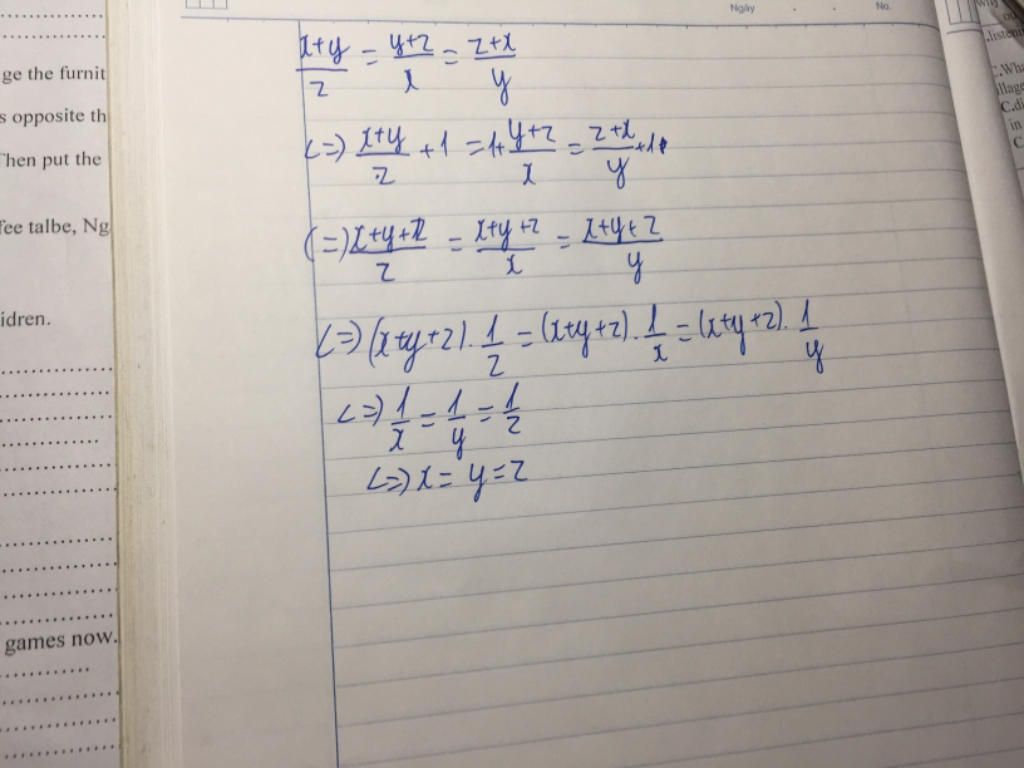 Ngày No.
ge the furnit
s opposite th
Then put the
fee talbe, Ng
idren.
games now.
x+y/z = y+z/x = z+x/y
<=> x+y/z + 1 = 1 + y+z/x = z+x/y + 1
<=> x+y+z/z = x+y+z/x = x+y+z/y
<=> (x+y+z) . 1/z = (x+y+z) . 1/x = (x+y+z) . 1/y
<=> 1/x = 1/y = 1/z
<=> x = y = z
listen
C.Wha
illage
C.di
in
C.